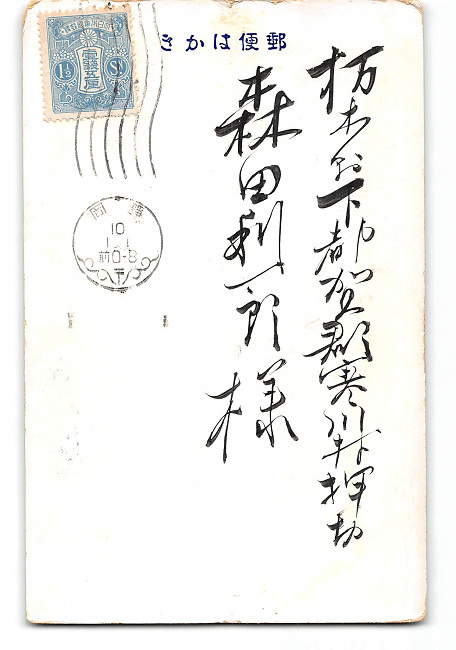 郵便はかき
大日本帝國郵便
壹錢五厘
1½ Sn
栃木県下都賀郡寒川村押切
森田利一郎様
10
1.1
前0-8